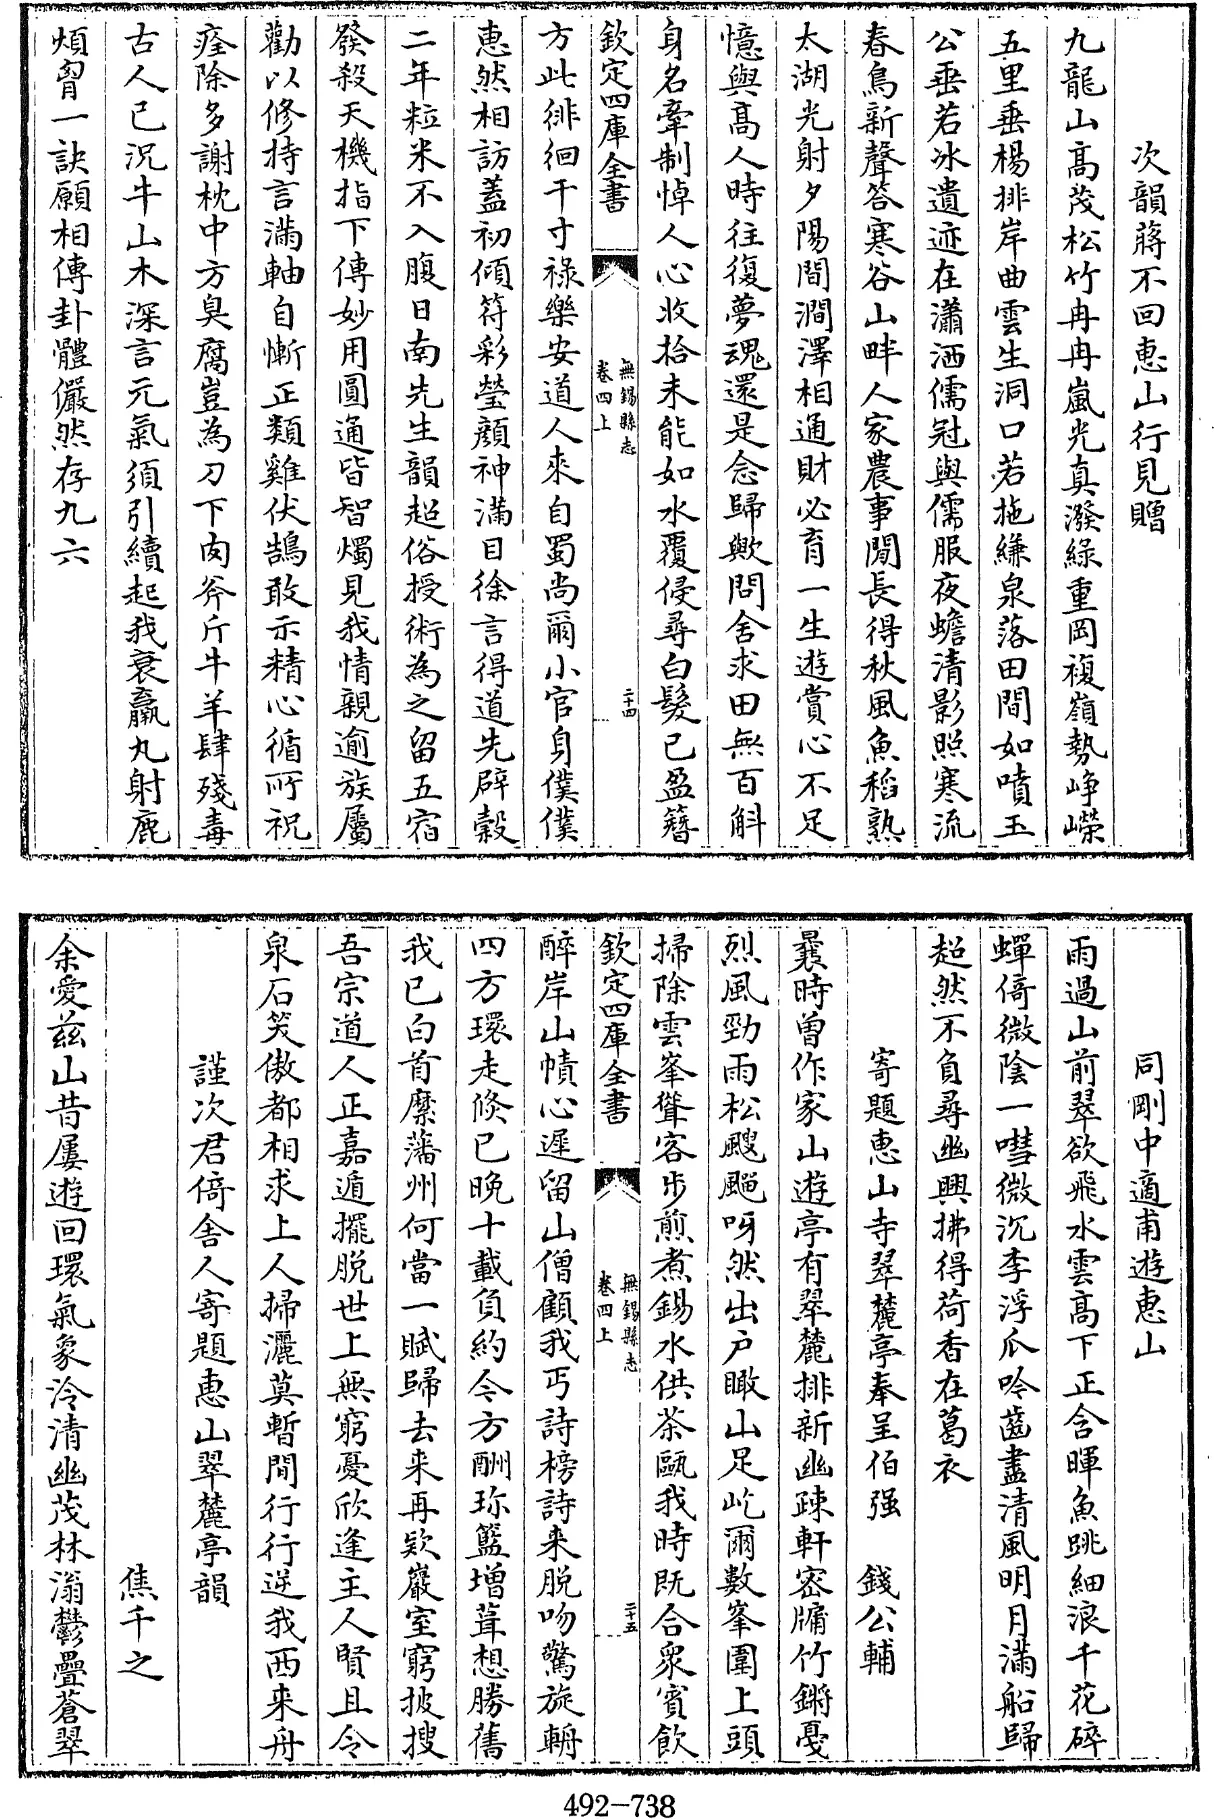 次韻蔣不回惠山行見贈
九龍山髙茂松竹冉冉嵐光真潑緑重岡複嶺勢崢嶸
五里垂楊排岸曲雲生洞口若拖縑泉落田間如噴玉
公垂若冰遺迹在瀟洒儒冠與儒服夜蟾清影照寒流
春鳥新聲答寒谷山畔人家農事閒長得秋風魚稻熟
太湖光射夕陽間澗澤相通財必育一生遊賞心不足
憶與髙人時往復夢魂還是念歸歟問舍求田無百斛
身名牽制悼人心收拾未能如水覆侵尋白髮已盈簪
欽定四庫全書
無錫縣志
卷四上
二十四
方此徘徊干寸祿樂安道人來自蜀尚爾小官身僕僕
惠然相訪蓋初傾符彩瑩顔神滿目徐言得道先辟榖
二年粒米不入腹日南先生韻超俗授術為之留五宿
發殺天機指下傳妙用圓通皆智燭見我情親逾族屬
勸以修持言滿軸自慚正類雞伏鵠敢示精心循所祝
痊除多謝枕中方臭腐豈為刀下肉斧斤牛羊肆殘毒
古人已況牛山木深言元氣須引續起我衰羸丸射鹿
煩胷一訣願相傳卦體儼然存九六
同剛中適甫遊惠山
雨過山前翠欲飛水雲髙下正含暉魚跳細浪千花碎
蟬倚微陰一嘒微沉李浮瓜吟齒盡清風明月滿船歸
超然不負尋幽興拂得荷香在葛衣
寄題惠山寺翠麓亭奉呈伯强 錢公輔
曩時曽作家山遊亭有翠麓排新幽疎軒密牖竹鏘戞
烈風勁雨松颼飀呀然出户瞰山足屹爾數峯圍上頭
掃除雲峯聳客步煎煮錫水供茶甌我時既合衆賓飲
欽定四庫全書
無錫縣志
卷四上
二十五
醉岸山幘心遲留山僧顧我丐詩榜詩来脱吻驚旋輈
四方環走倐已晚十載負約今方酬珎籃增葺想勝舊
我已白首縻藩州何當一賦歸去来再欵巖室窮披搜
吾宗道人正嘉遁擺脱世上無窮憂欣逢主人賢且令
泉石笑傲都相求上人掃灑莫暫間行行逆我西来舟
謹次君倚舍人寄題惠山翠麓亭韻
焦千之
余愛兹山昔屢遊回環氣象泠清幽茂林滃鬱疊蒼翠
492-738